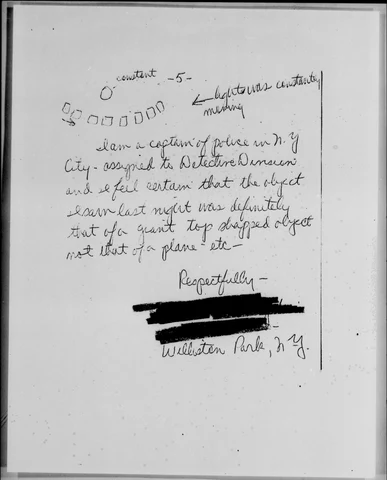 constant -5-
← lights was constantly
moving
I am a captain of police in N.Y
City - assigned to Detective Division
and I feel certain that the object
I saw last night was definitely
that of a giant top shapped object
not that of a plane - etc -
Respectfully -
Williston Park, N.Y.